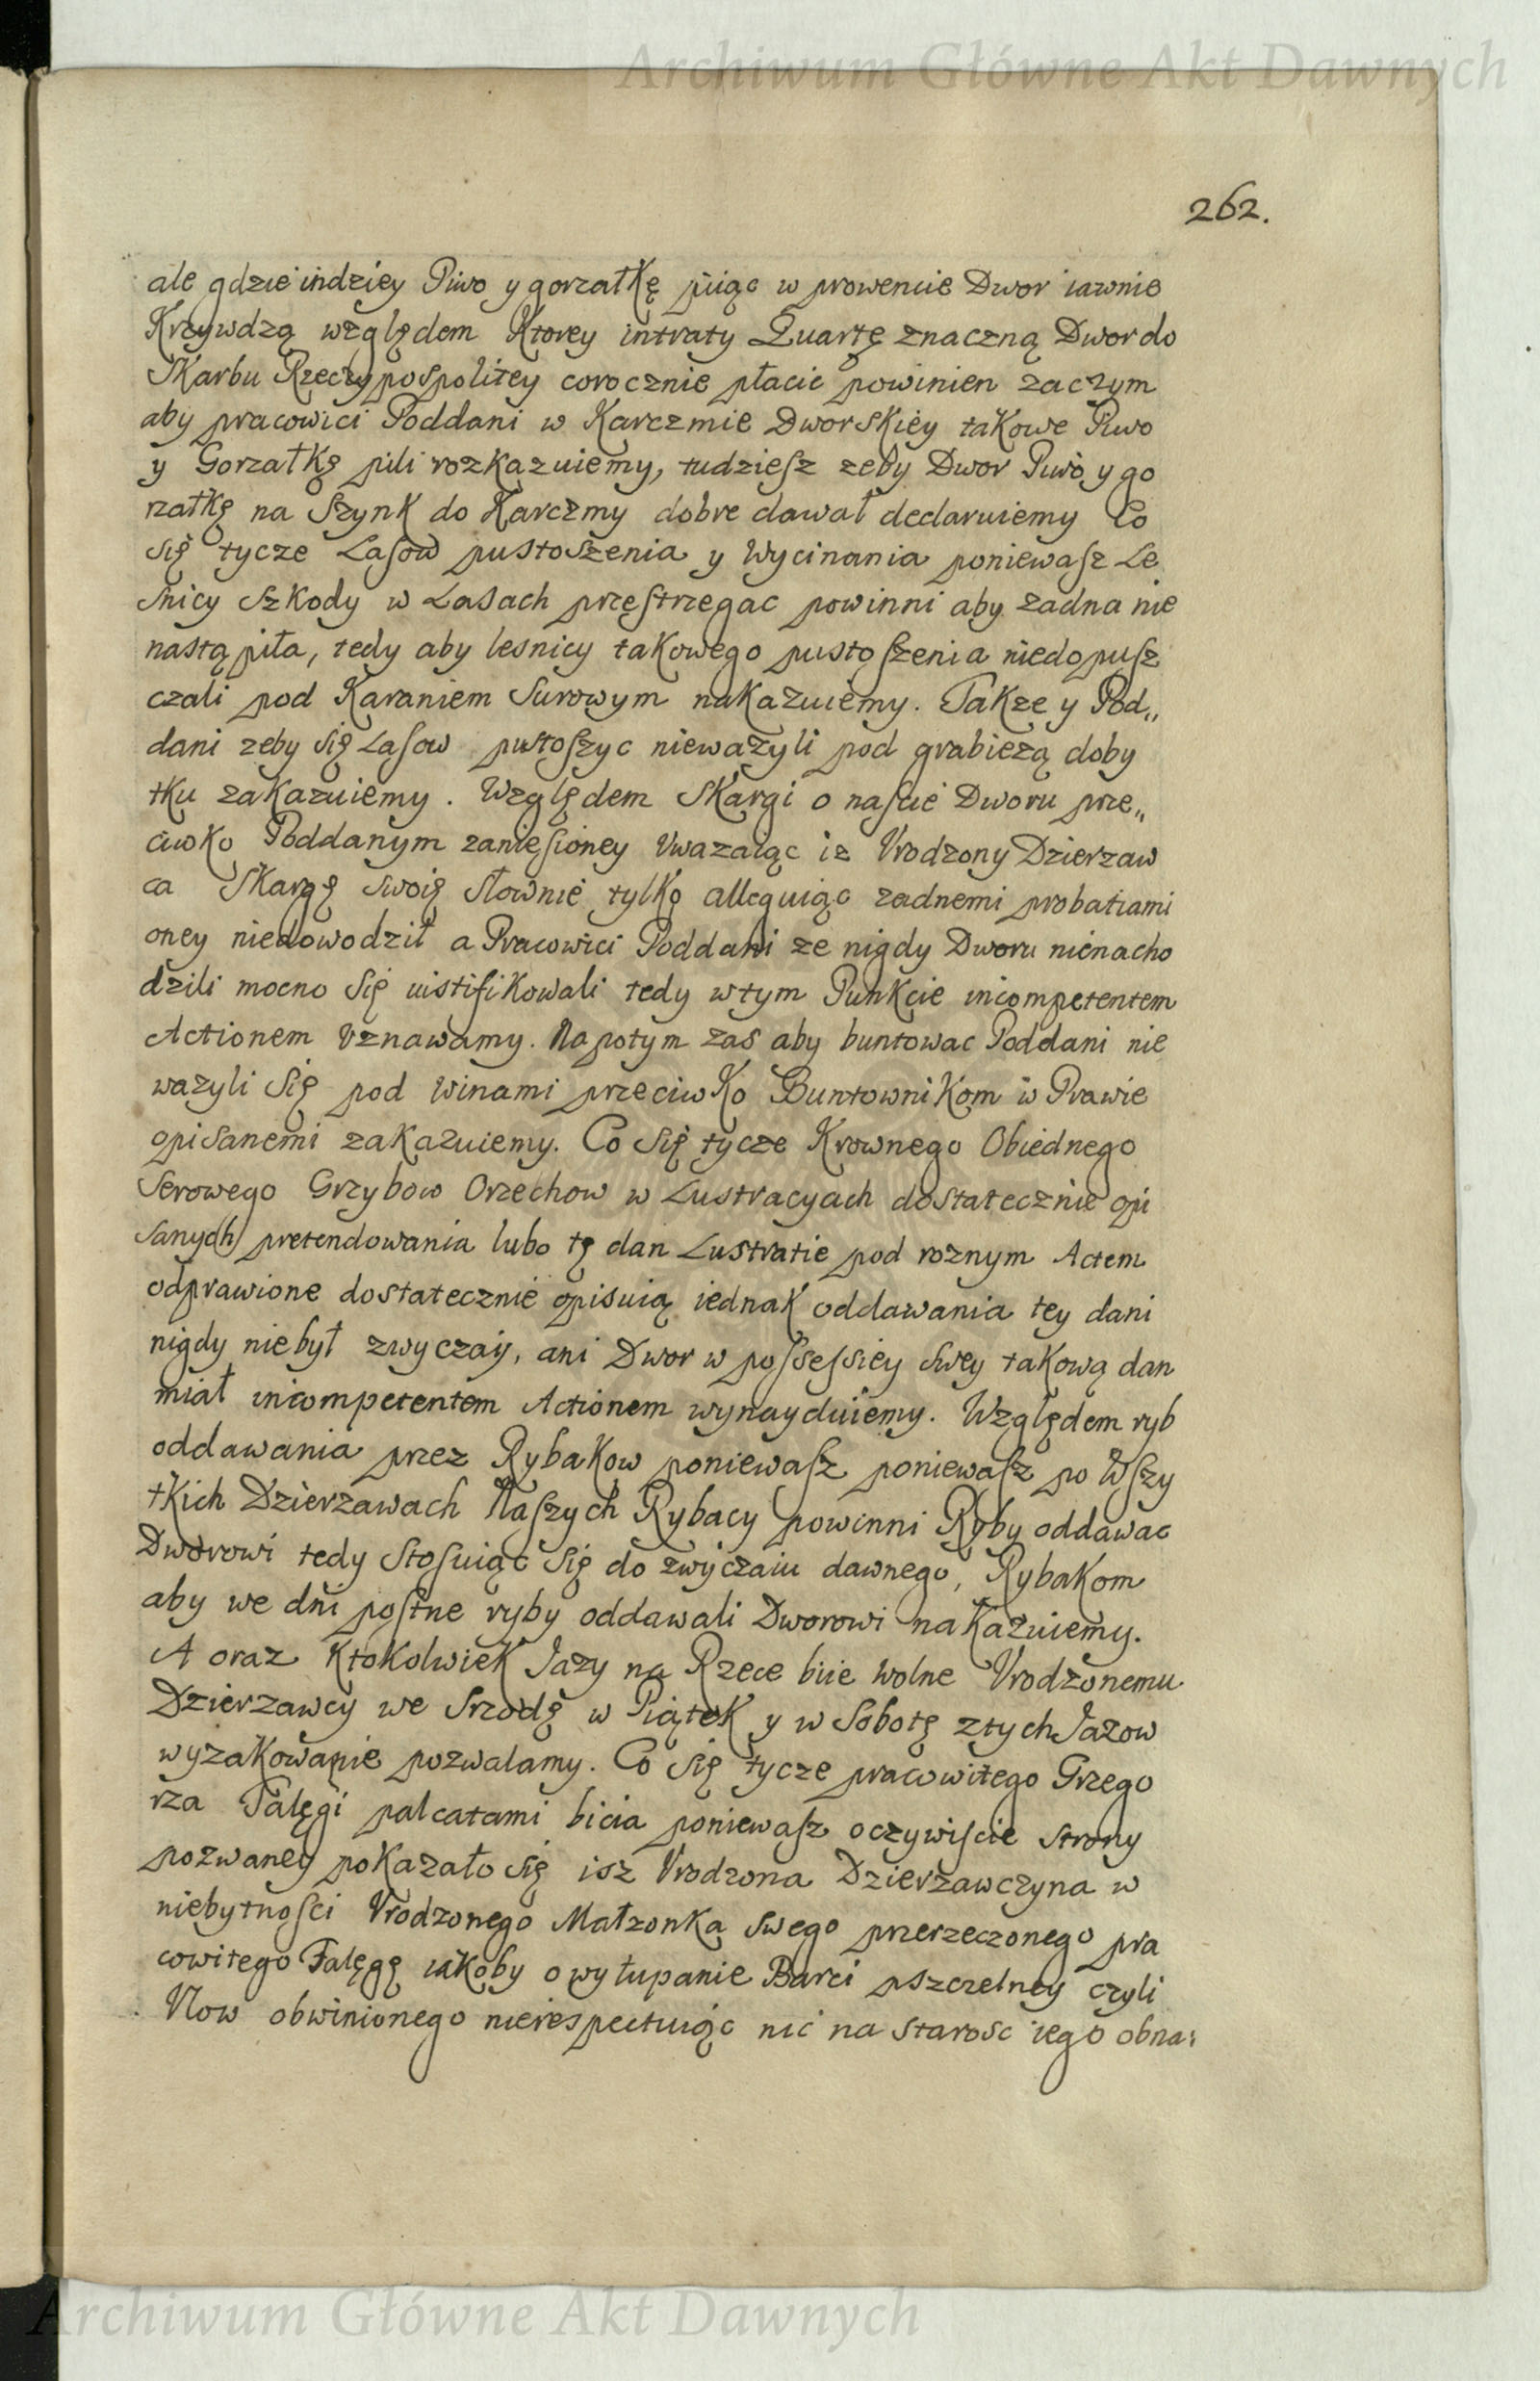 Archiwum Główne Akt Dawnych
262.
ale gdzie indziey Piwo y gorzałkę piiąc w prowencie Dwor iawnie
Krzywdzą względem Ktorey intraty Quartę znaczną Dwor do
Skarbu Rzeczypospolitey corocznie płacic powinien zaczym
aby pracowici Poddani w Karczmie Dworskiey takowe Piwo
y Gorzałkę pili rozkazuiemy, tudziesz zeby Dwor Piwo y go
rzałkę na Szynk do Karczmy dobre dawał declaruiemy Co
się tycze Lasow pustoszenia y Wycinania poniewasz Le
snicy szkody w Lasach przestrzegac powinni aby zadna nie
nastąpiła, tedy aby lesnicy takowego pustoszenia niedopusz
czali pod Karaniem Surowym nakazuiemy. Takze y Pod„
dani zeby się Lasow pustoszyc nieważyli pod grabiezą doby
tku zakazuiemy. Względem Skargi o nascie Dworu prze„
ciwko Poddanym zaniesioney Uwazaiąc iz Urodzony Dzierzaw
ca Skargę swoię słownie tylko alleguiąc zadnemi probatiami
oney niedowodził a Pracowici Poddani ze nigdy Dworu nienacho
dzili mocno się iustifikowali tedy wtym Punkcie incompetentem
Actionem Uznawamy. Napotym zas aby buntowac Poddani nie
wazyli się pod winami przeciwko Buntownikom w Prawie
opisanemi zakazuiemy. Co się tycze Krownego Obiednego
Serowego Grzybow Orzechow w Lustracyach dostatecznie opi
sanych pretendowania lubo tę dan Lustratie pod roznym Actem
odprawione dostatecznie opisuią iednak oddawania tey dani
nigdy niebył zwyczaiy, ani Dwor w possessiey swey takową dan
miał incompetentem Actionem wynayduiemy. Względem ryb
oddawania przez Rybakow poniewasz poniewasz po Wszy
tkich Dzierzawach Naszych Rybacy powinni Ryby oddawac
Dworowi tedy stosuiąc się do zwyczaiu dawnego, Rybakom
aby we dni postne ryby oddawali Dworowi nakazuiemy.
A oraz Ktokolwiek Jazy na Rzece biie wolne Urodzonemu
Dzierzawcy we Srzodę w Piątek y w Sobotę ztych Jazow
wyzakowanie pozwalamy. Co się tycze pracowitego Grzego
rza Falęgi palcatami bicia poniewasz oczywiscie strony
pozwaney pokazało się isz Urodzona Dzierzawczyna w
niebytnosci Urodzonego Małzonka swego przerzeczonego pra
cowitego Falęgę iakoby o wyłupanie Barci pszczelney czyli
Ulow obwinionego nierespectuiąc nic na starosc iego obna:
Archiwum Główne Akt Dawnych